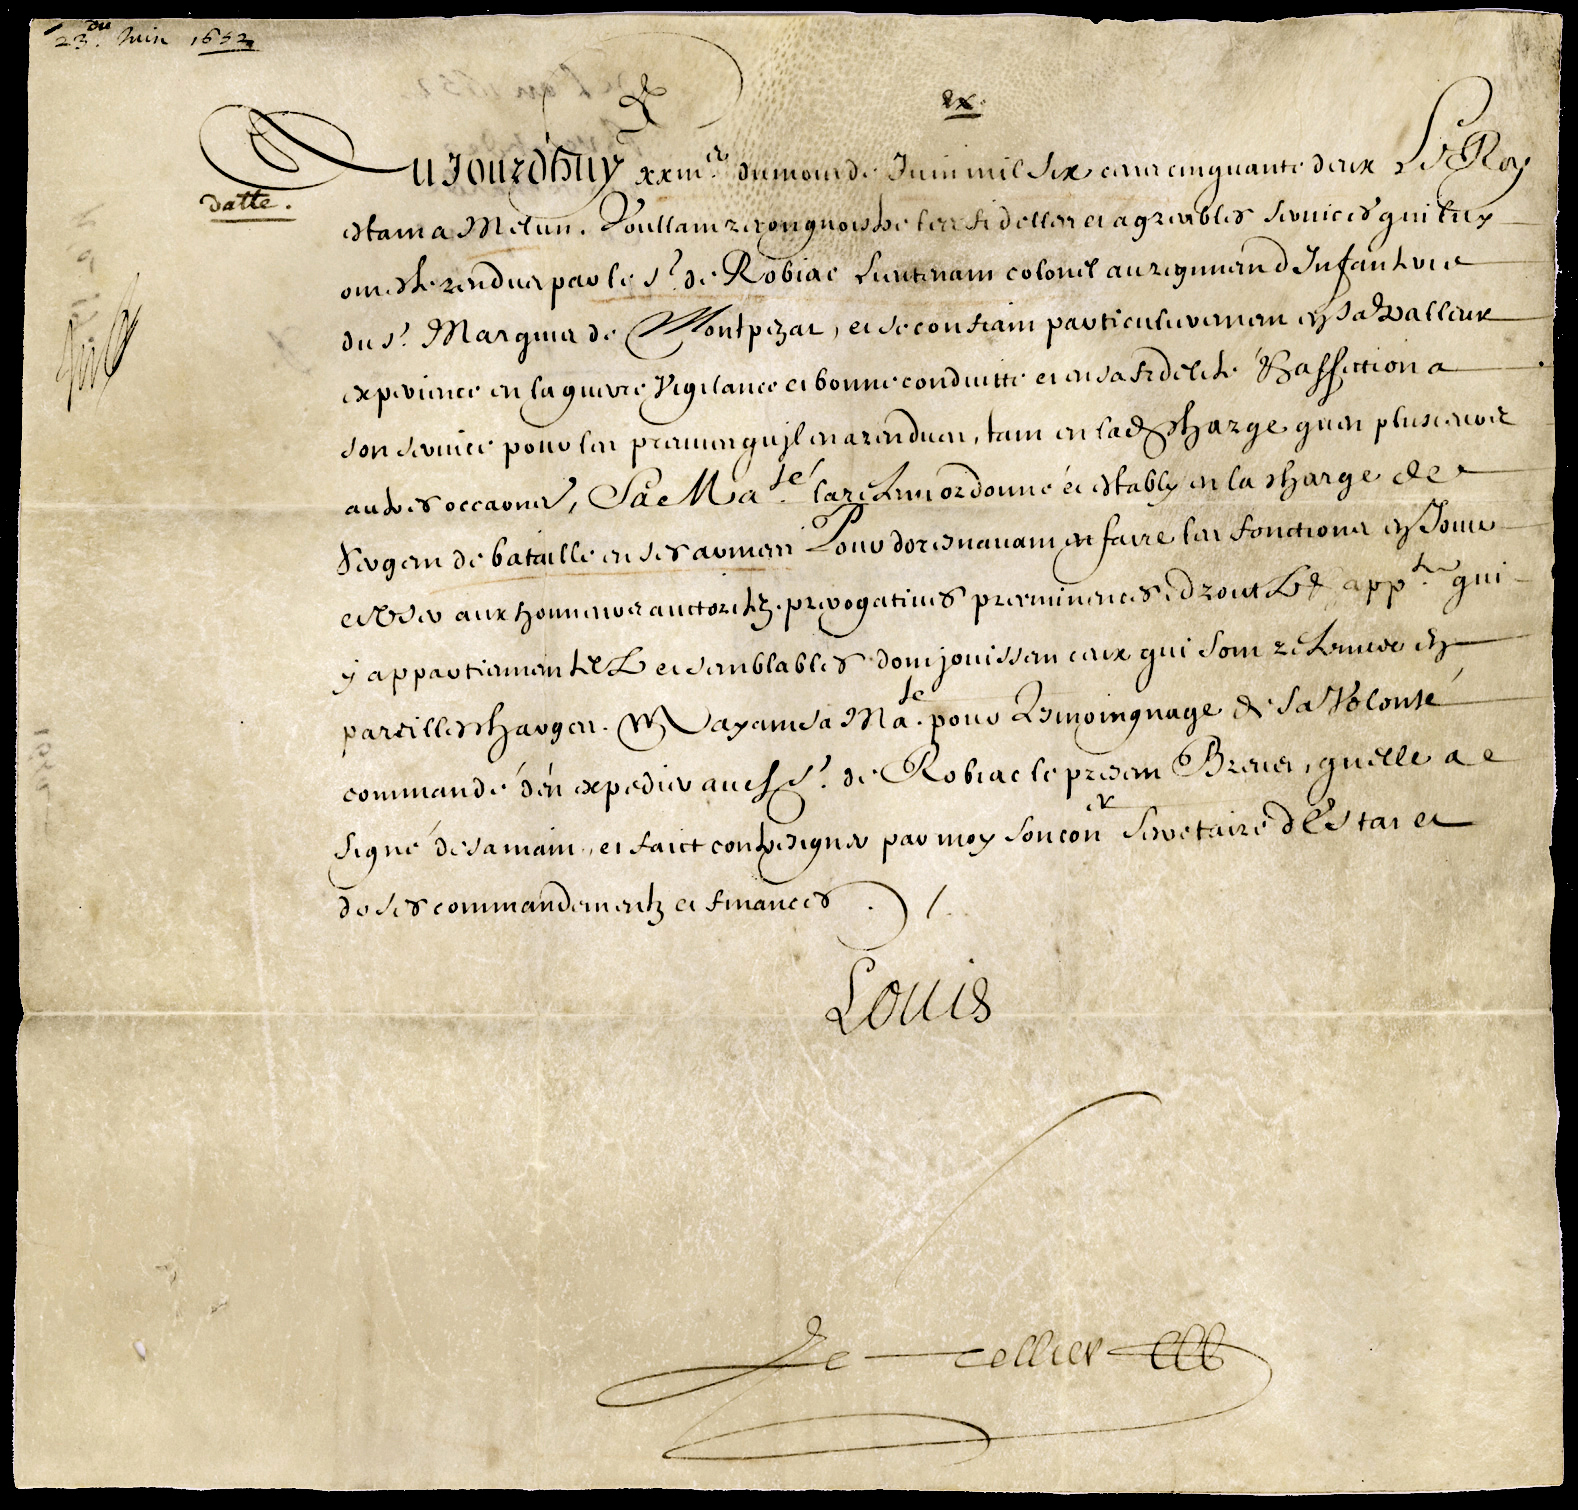 23.du Juin 1652
Aujourd'huy xxiiie du mois de Juin mil six cens cinquante deux Le Roy
datte.
estant a Melun. Voullant recongnoistre les fidelles et agreables services qui luy
ont esté rendus par le Sr. de Robiac Lieutenant colonel au regiment d'Infanterie
du Sr. Marquis de Montpezat, et se confiant particulierement en sa valleur
experience en la guerre Vigilance et bonne conduitte et en sa fidelité & affection a
son service pour les preuves qu'il en a rendues, tant en lad. charge qu'en plusieurs
autres occasions, Sa Mate. la retenu ordonné et estably en la charge de
Sergent de bataille en ses armées Pour doresnavant en faire les fonctions en Jouir
et User aux honneurs auctoritez. prerogatives preeminences droictz & appt. qui
y appartiennent telz et semblables dont jouissent ceux qui sont retenus en
pareilles charges. Mayant sa Mate. pour Tesmoingnage de sa Volonté
commandé d'en expedier aud. Sr. de Robiac le present Brevet, qu'elle a
signé de sa main, et faict contresigner par moy son conr Secretaire d'Estat et
de ses commandementz et finances ./.
Louis
Le Tellier